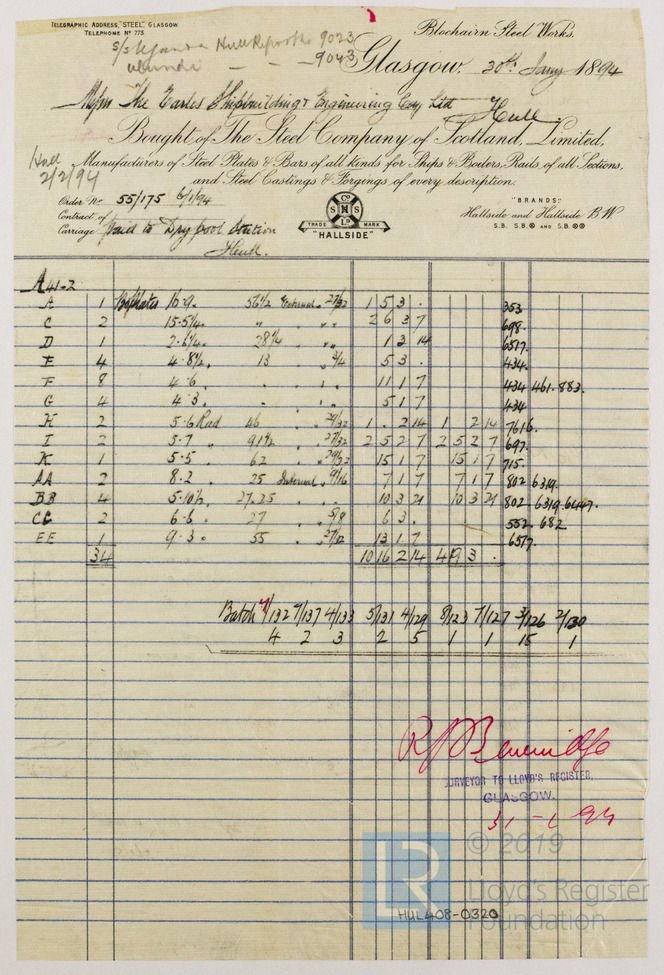 TELEGRAPHIC ADDRESS, "STEEL", GLASGOW
TELEPHONE No 773
Blochairn Steel Works.
S/S Hull Reports 9023
— — 9043
Glasgow, 30th Jany 1894
Messrs The Earles Shipbuilding & Engineering Coy Ltd Hull
Bought of The Steel Company of Scotland, Limited,
Hull
2/2/94
Manufacturers of Steel Plates & Bars of all kinds for Ships & Boilers, Rails of all Sections,
and Steel Castings & Forgings of every description.
Order No 55/175 6/1/94
Contract of
Carriage paid to Drypool Station
Hull.
S Co N S Ld
TRADE MARK
"HALLSIDE"
"BRANDS:"
Hallside and Hallside B W
S.B. S.B. AND S.B.
A 41-2
A 1 16.9 56½ External 27/32 1 5 3 . 353
C 2 15.5¼ " " " 2 6 3 7 698.
D 1 2.6¼ 28¼ " " 1 3 14 6517.
E 4 4.8½ 13 " ¾ 5 3 . 434.
F 8 4.6 . . . 11 1 7 434 461.883.
G 4 4.3 . . . 5 1 7 434
H 2 5.6 Rad 46 . 29/32 1 . 2 14 1 2 14 7616.
I 2 5.7 . 91½ . 27/32 2 5 2 7 2 5 2 7 697.
K 1 5.5 . 62 . 29/32 15 1 7 15 1 7 715.
AA 2 8.2 . 25 Internal 9/16 7 1 7 7 1 7 802 6319.
BB 4 5.10½ 27.25 . . 10 3 21 10 3 21 802 6319.6447.
CC 2 6.6 . 27 . 5/8 6 3 . 552. 682
EE 1 9.3 . 55 . 13 1 7 6517
34 10 16 2 14 4 19 3 .
Batch 4/132 7/137 4/133 5/131 4/129 8/123 7/127 3/126 2/130
4 2 3 2 5 1 1 15 1
SURVEYOR TO LLOYD'S REGISTER,
GLASGOW.
31-1-94
LR
© 2019
Lloyd's Register
Foundation
HUL408-0320